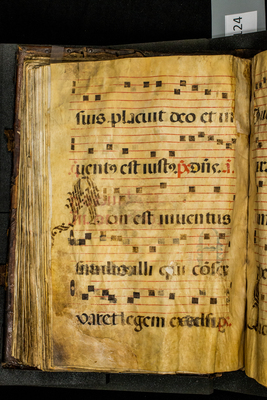 224
suis placuit deo et in
uent9 est iust9 p dñe ı̃
on est inuentus
similis illi qui cõser
varet legem excelsi p